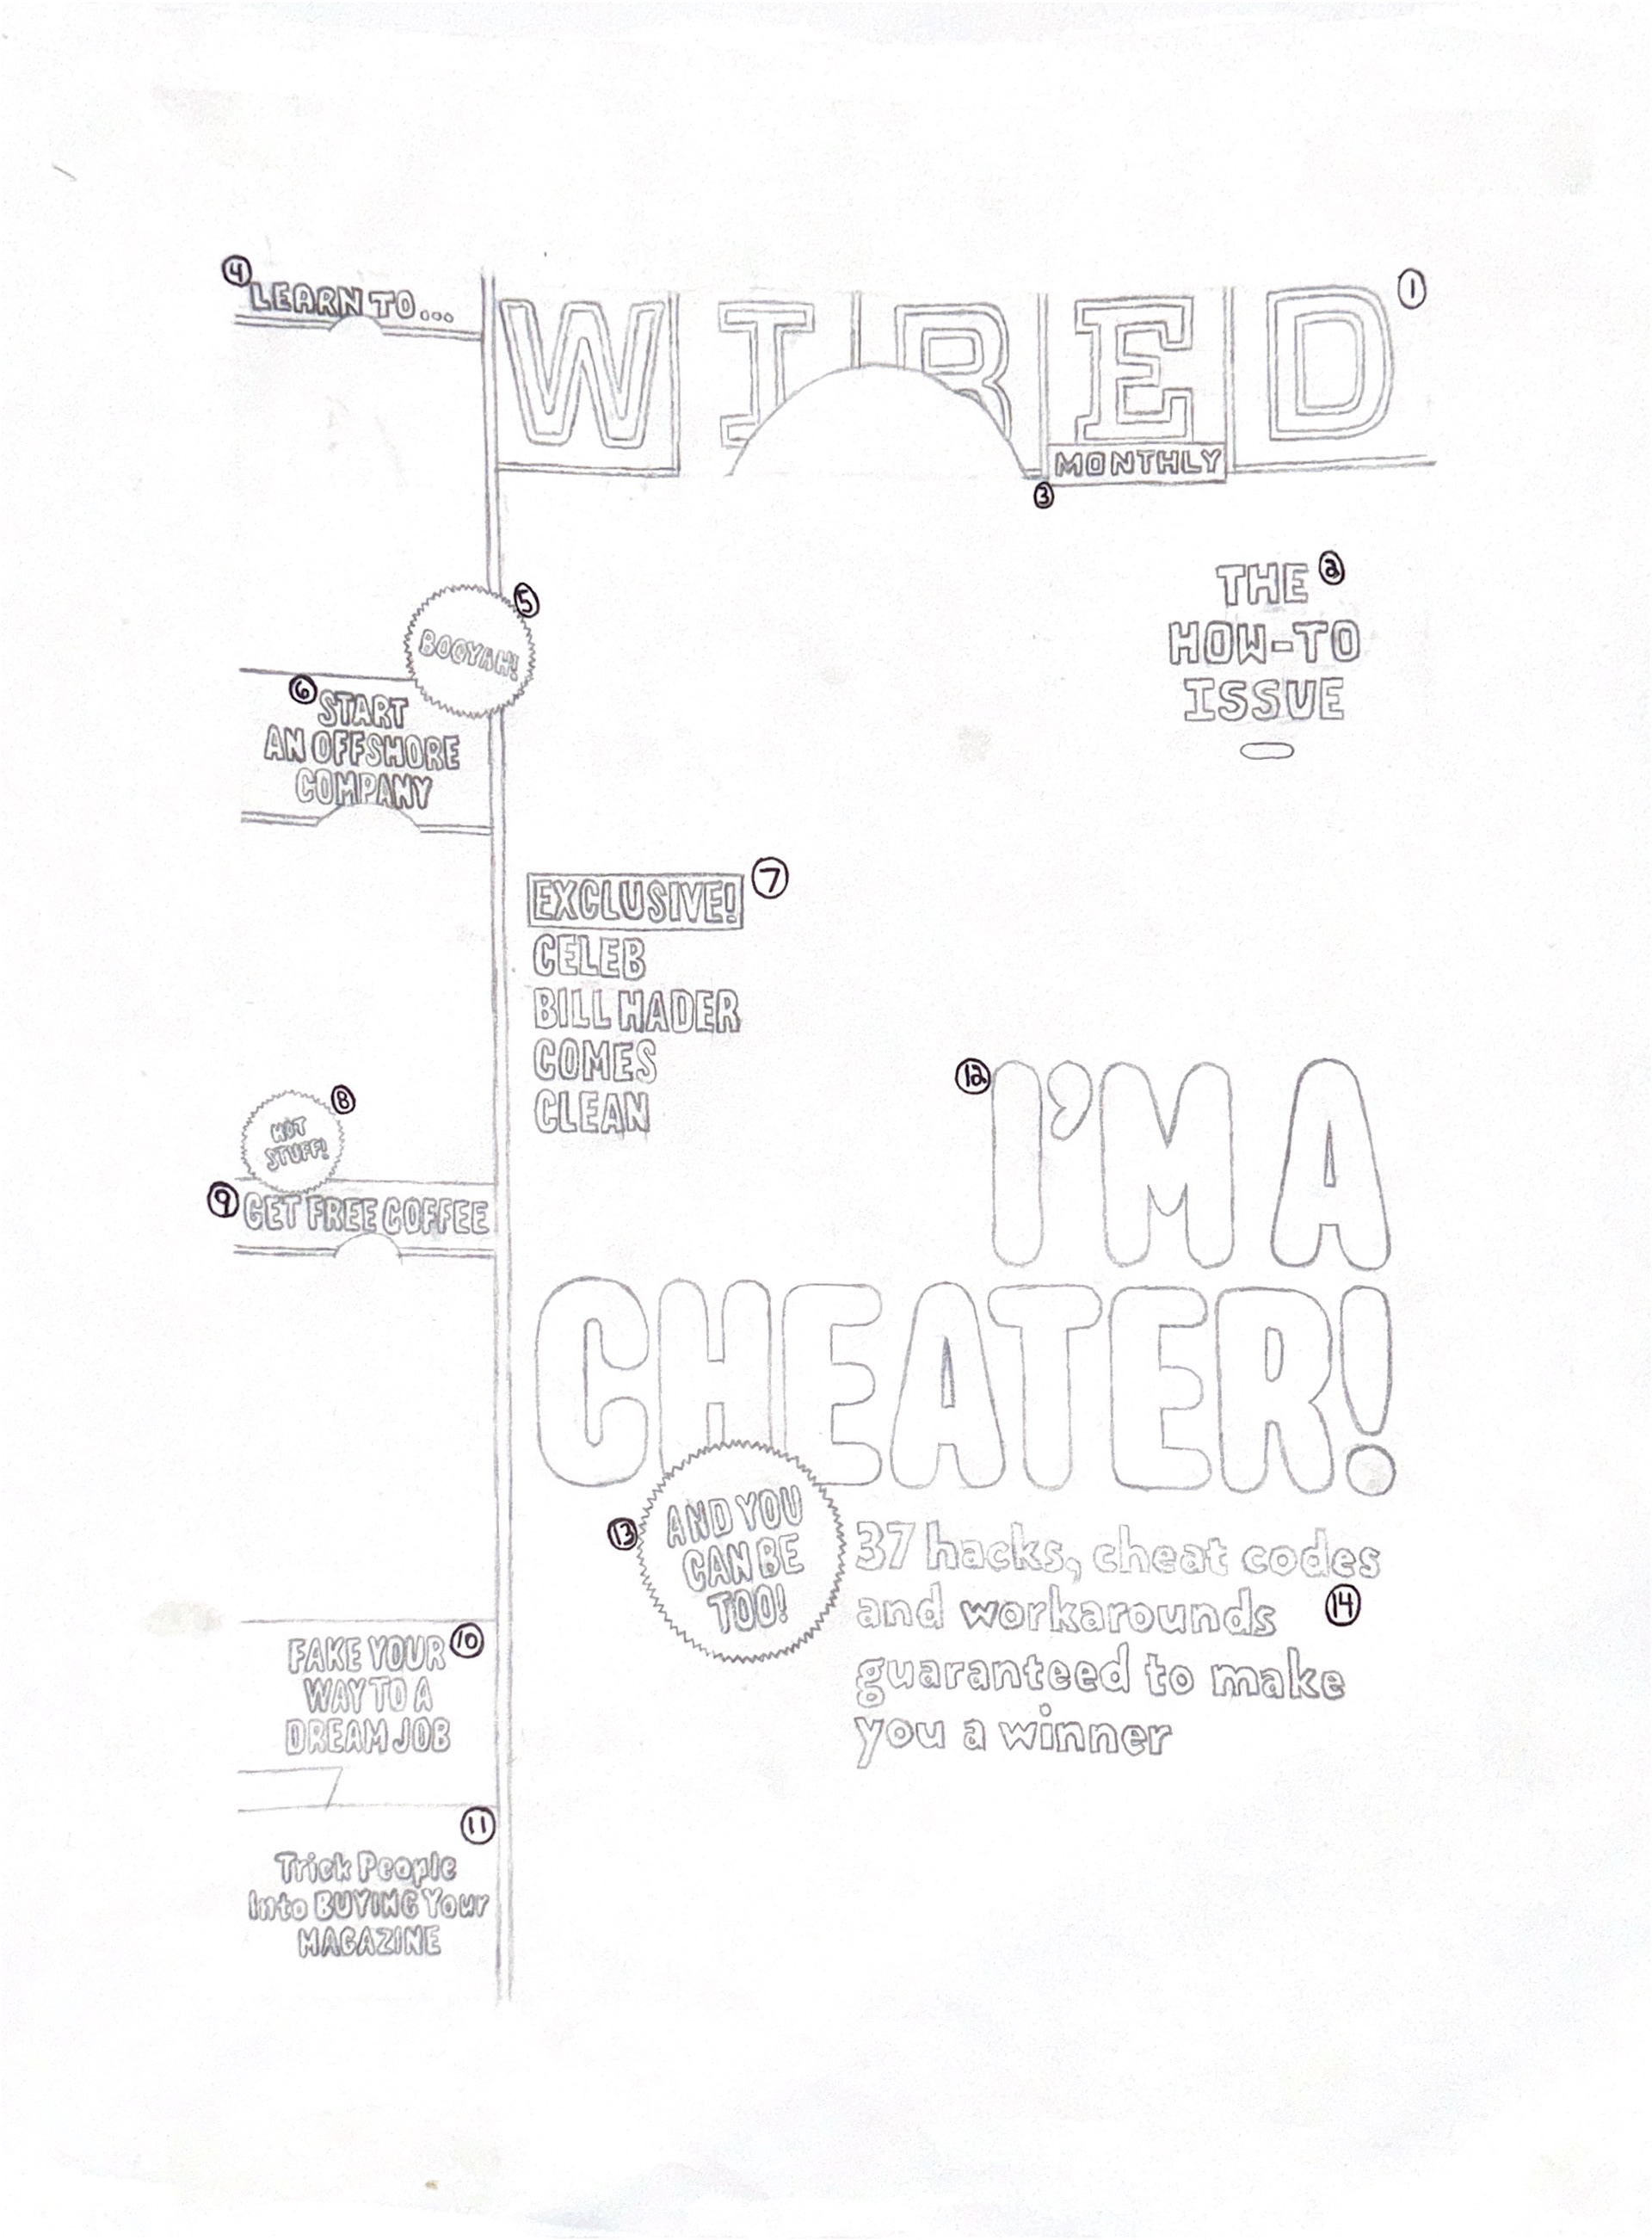 4
LEARN TO...
WIRED
1
MONTHLY
3
THE
2
HOW-TO
ISSUE
BOOYAH!
5
6
START
AN OFFSHORE
COMPANY
EXCLUSIVE!
7
CELEB
BILL HADER
COMES
CLEAN
HOT
STUFF!
8
9
GET FREE COFFEE
FAKE YOUR
10
WAY TO A
DREAM JOB
11
Trick People
Into BUYING Your
MAGAZINE
12
I'M A
CHEATER!
13
AND YOU
CAN BE
TOO!
37 hacks, cheat codes
and workarounds
14
guaranteed to make
you a winner